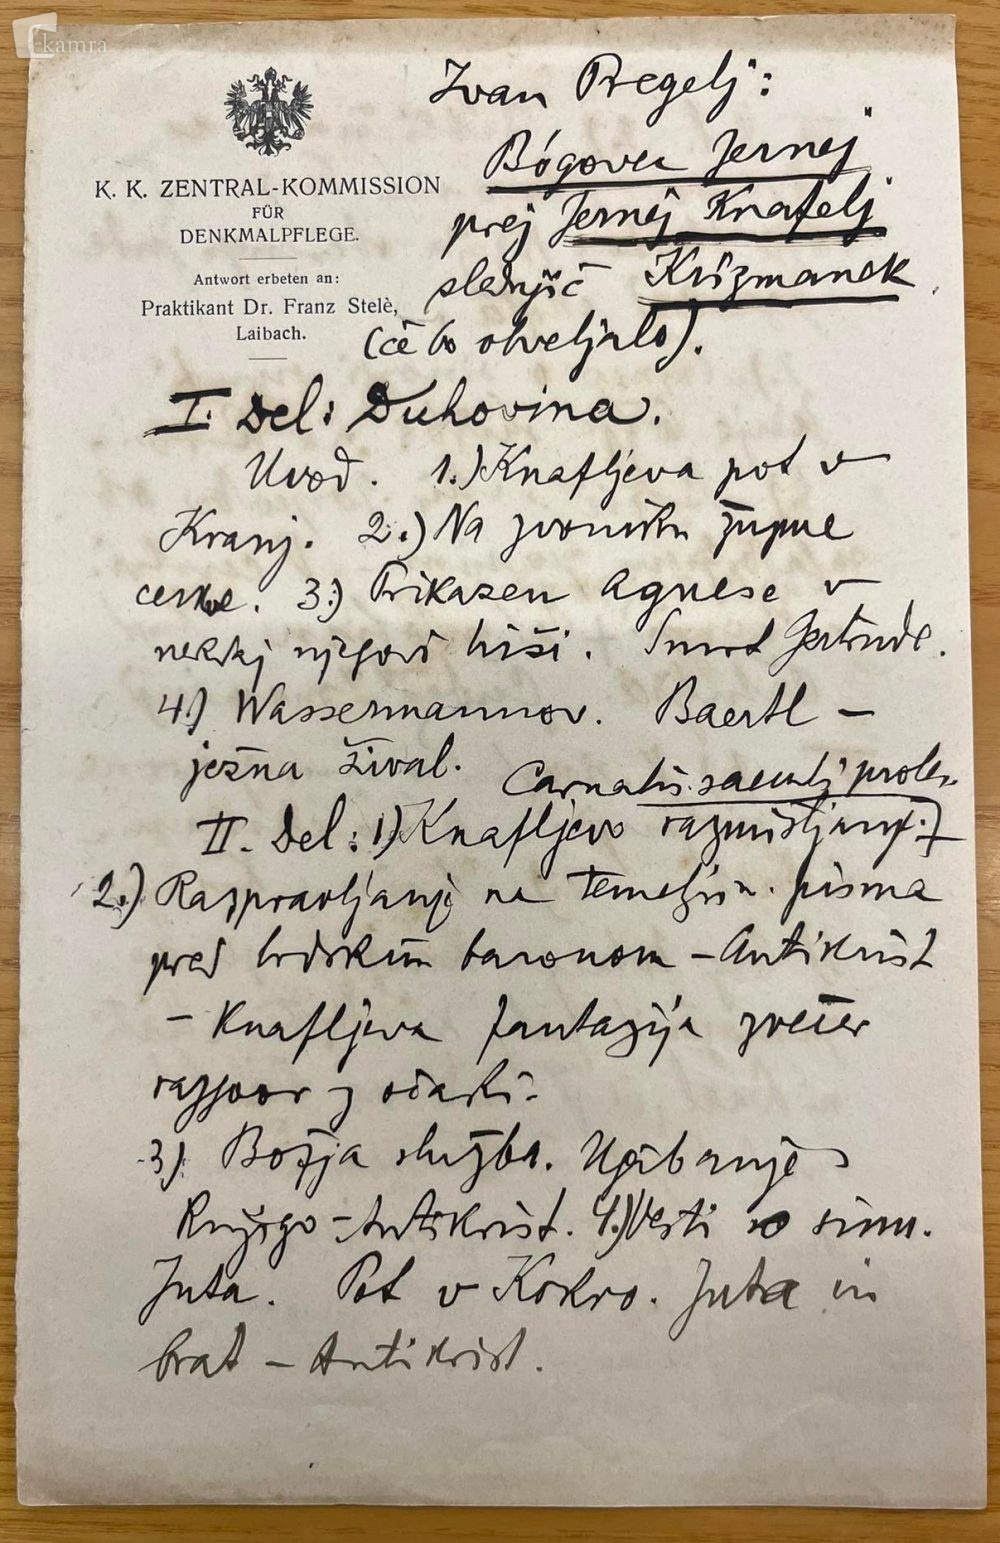 kamra
K. K. ZENTRAL-KOMMISSION
FÜR
DENKMALPFLEGE.
Antwort erbeten an:
Praktikant Dr. Franz Stelè,
Laibach.
Ivan Pregelj:
Bógovec Jernej
prej Jernej Knafelj
slednjič Križmanek
(če bo obveljalo).
I. Del: Duhovina.
Uvod. 1.) Knafljeva pot v
Kranj. 2.) Na zvoniku župne
cerkve. 3.) Prikazen Agnese v
nekdaj njegovi hiši. Smrt Gertrude.
4.) Wassermannov. Baertl –
ježna žival.
Carnalis saeculi proles
II. Del: 1) Knafljevo razmišljanje.
2.) Razpravljanje na temelju pisma
pred brdskim baronom – Antikrist
– Knafljeva fantazija zvečer
razgovor z očaki.
3) Božja služba. Ugibanje
Antikrist. 4.) Vesti o sinu.
Juta. Pot v Kokro. Juta in
brat – Antikrist.